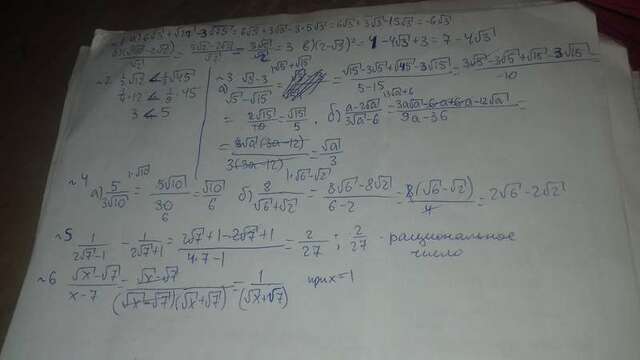 а) 6√3 + √27 - 3√75 = 6√3 + 3√3 - 3·5√3 = 6√3 + 3√3 - 15√3 = -6√3
√2 = √2 = 3√2/√2 = 3 в) (2-√3)² = 4 - 4√3 + 3 = 7 - 4√3
~2 ½√12 < ⅓√45
¼·12 < 1/9·45
3 < 5
~3 а) (√3-3)/(√5-√15) = = (√15-3√5+√45-3√15)/(5-15) = (3√5-3√5+√15-3√15)/-10
= 2√15/10 = √15/5, б) (a-2√a)/(3√a-6) = (3a√a-6a+6a-12√a)/(9a-36) =
= √a(3a-12)/3(3a-12) = √a/3
~4 а) 5/3√10 = 5√10/30 = √10/6 б) 8/(√6+√2) = (8√6-8√2)/(6-2) = 8(√6-√2)/4 = 2√6-2√2
~5 1/(2√7-1) - 1/(2√7+1) = (2√7+1-2√7+1)/(4·7-1) = 2/27; 2/27 - рациональное
число
~6 (√x-√7)/(x-7) = (√x-√7)/((√x-√7)(√x+√7)) = 1/(√x+√7) при x=1